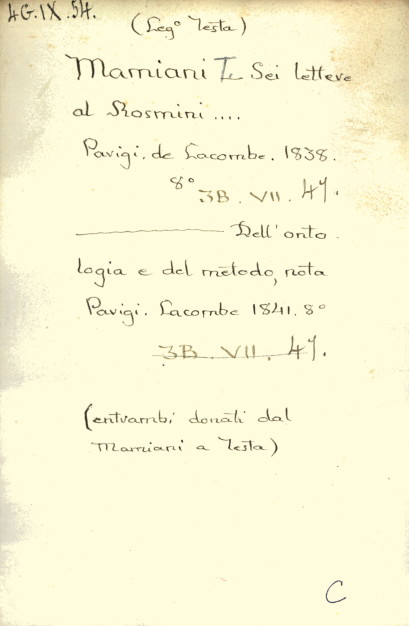 4G.IX.54.
(Leg° Testa)
Mamiani T. Sei lettere
al Rosmini....
Parigi. de Lacombe. 1838.
8°
3B. VII. 47.
Dell'onto
logia e del metodo, nota
Parigi. Lacombe 1841. 8°
3B. VII. 47.
(entrambi donati dal
Mamiani a Testa)
C